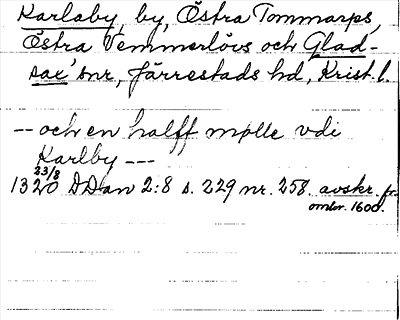 Karlaby, by, Östra Tommarps,
Östra Vemmerlövs och Glad-
sax' snr, Järrestads hd, Krist. l.
-- och en halff mølle vdi
Karlby ---
23/8
1320 DDan 2:8 s. 229 nr. 258. avskr. fr.
omkr. 1600.